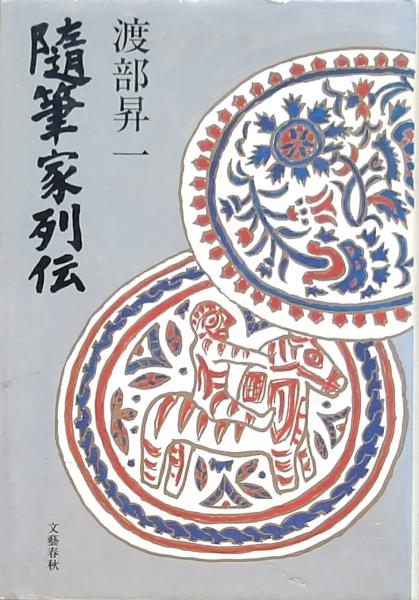 渡部昇一
隨筆家列伝
文藝春秋